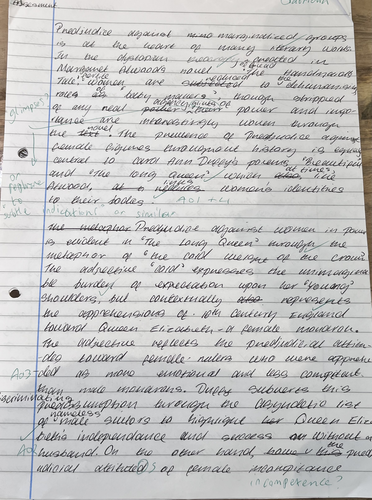 Prejudice against marginalized groups
is at the heart of many literary works.
In the dystopian created in
Margaret Atwoods novel "The Handmaid's
Tale" women are reduced to dehumanising
roles as baby makers though stripped
of any real power and impor-
tance are interestingly women through
the novel. The presence of Prejudice against
female figures throughout history is equally
central to Carol Ann Duffy's poems "Beautiful"
and "The Long Queen" when at times, like
Atwood, women's identities
to their bodies. AO1 + 4
glimpse?
or rephrase to
subtle indications or similar
The metaphor Prejudice against women in power
is evident in "The Long Queen" through the
metaphor of "the cold weight of the crown".
The adjective "cold" expresses the unimagina-
ble burden of expectation upon her "young"
shoulders but contextually also represents
the apprehensions of 16th century England
toward Queen Elizabeth - a female monarch.
The adjective reflects the prejudicial attitu-
des toward female rulers who were
AO3
as more emotional and less competent
than male monarchs. Duffy subverts this
discriminating
through the asyndetic list
of nameless male suitors to highlight her Queen Eliza-
beths independance and success without a
AO2
husband. On the other hand, the preju-
dicial of female insignificance
incompetence?